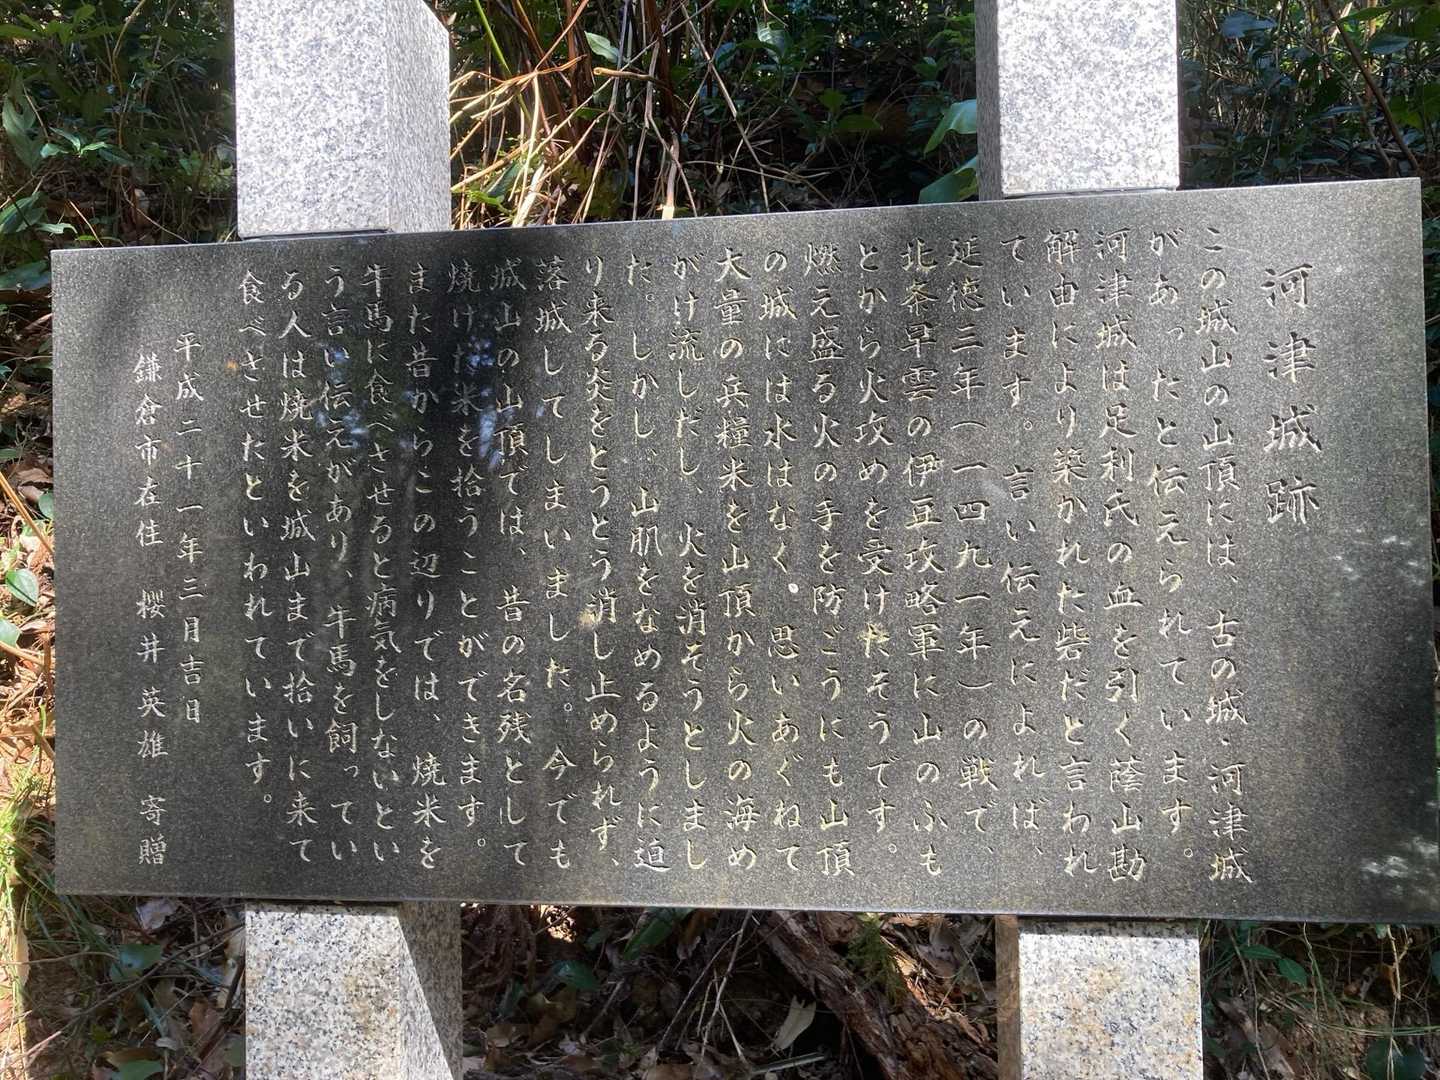 河津城跡
この城山の山頂には、古の城・河津城
があったと伝えられています。
河津城は足利氏の血を引く蔭山勘
解由により築かれた砦だと言われ
ています。言い伝えによれば、
延徳三年（一四九一年）の戦で、
北条早雲の伊豆攻略軍に山のふも
とから火攻めを受けたそうです。
燃え盛る火の手を防ごうにも山頂
の城には水はなく。思いあぐねて
大量の兵糧米を山頂から火の海め
がけ流しだし、火を消そうとしまし
た。しかし、山肌をなめるように迫
り来る炎をとうとう消し止められず、
落城してしまいました。今でも
城山の山頂では、昔の名残として
焼けた米を拾うことができます。
また昔からこの辺りでは、焼米を
牛馬に食べさせると病気をしないとい
う言い伝えがあり、牛馬を飼ってい
る人は焼米を城山まで拾いに来て
食べさせたといわれています。
平成二十一年三月吉日
鎌倉市在住 櫻井英雄 寄贈